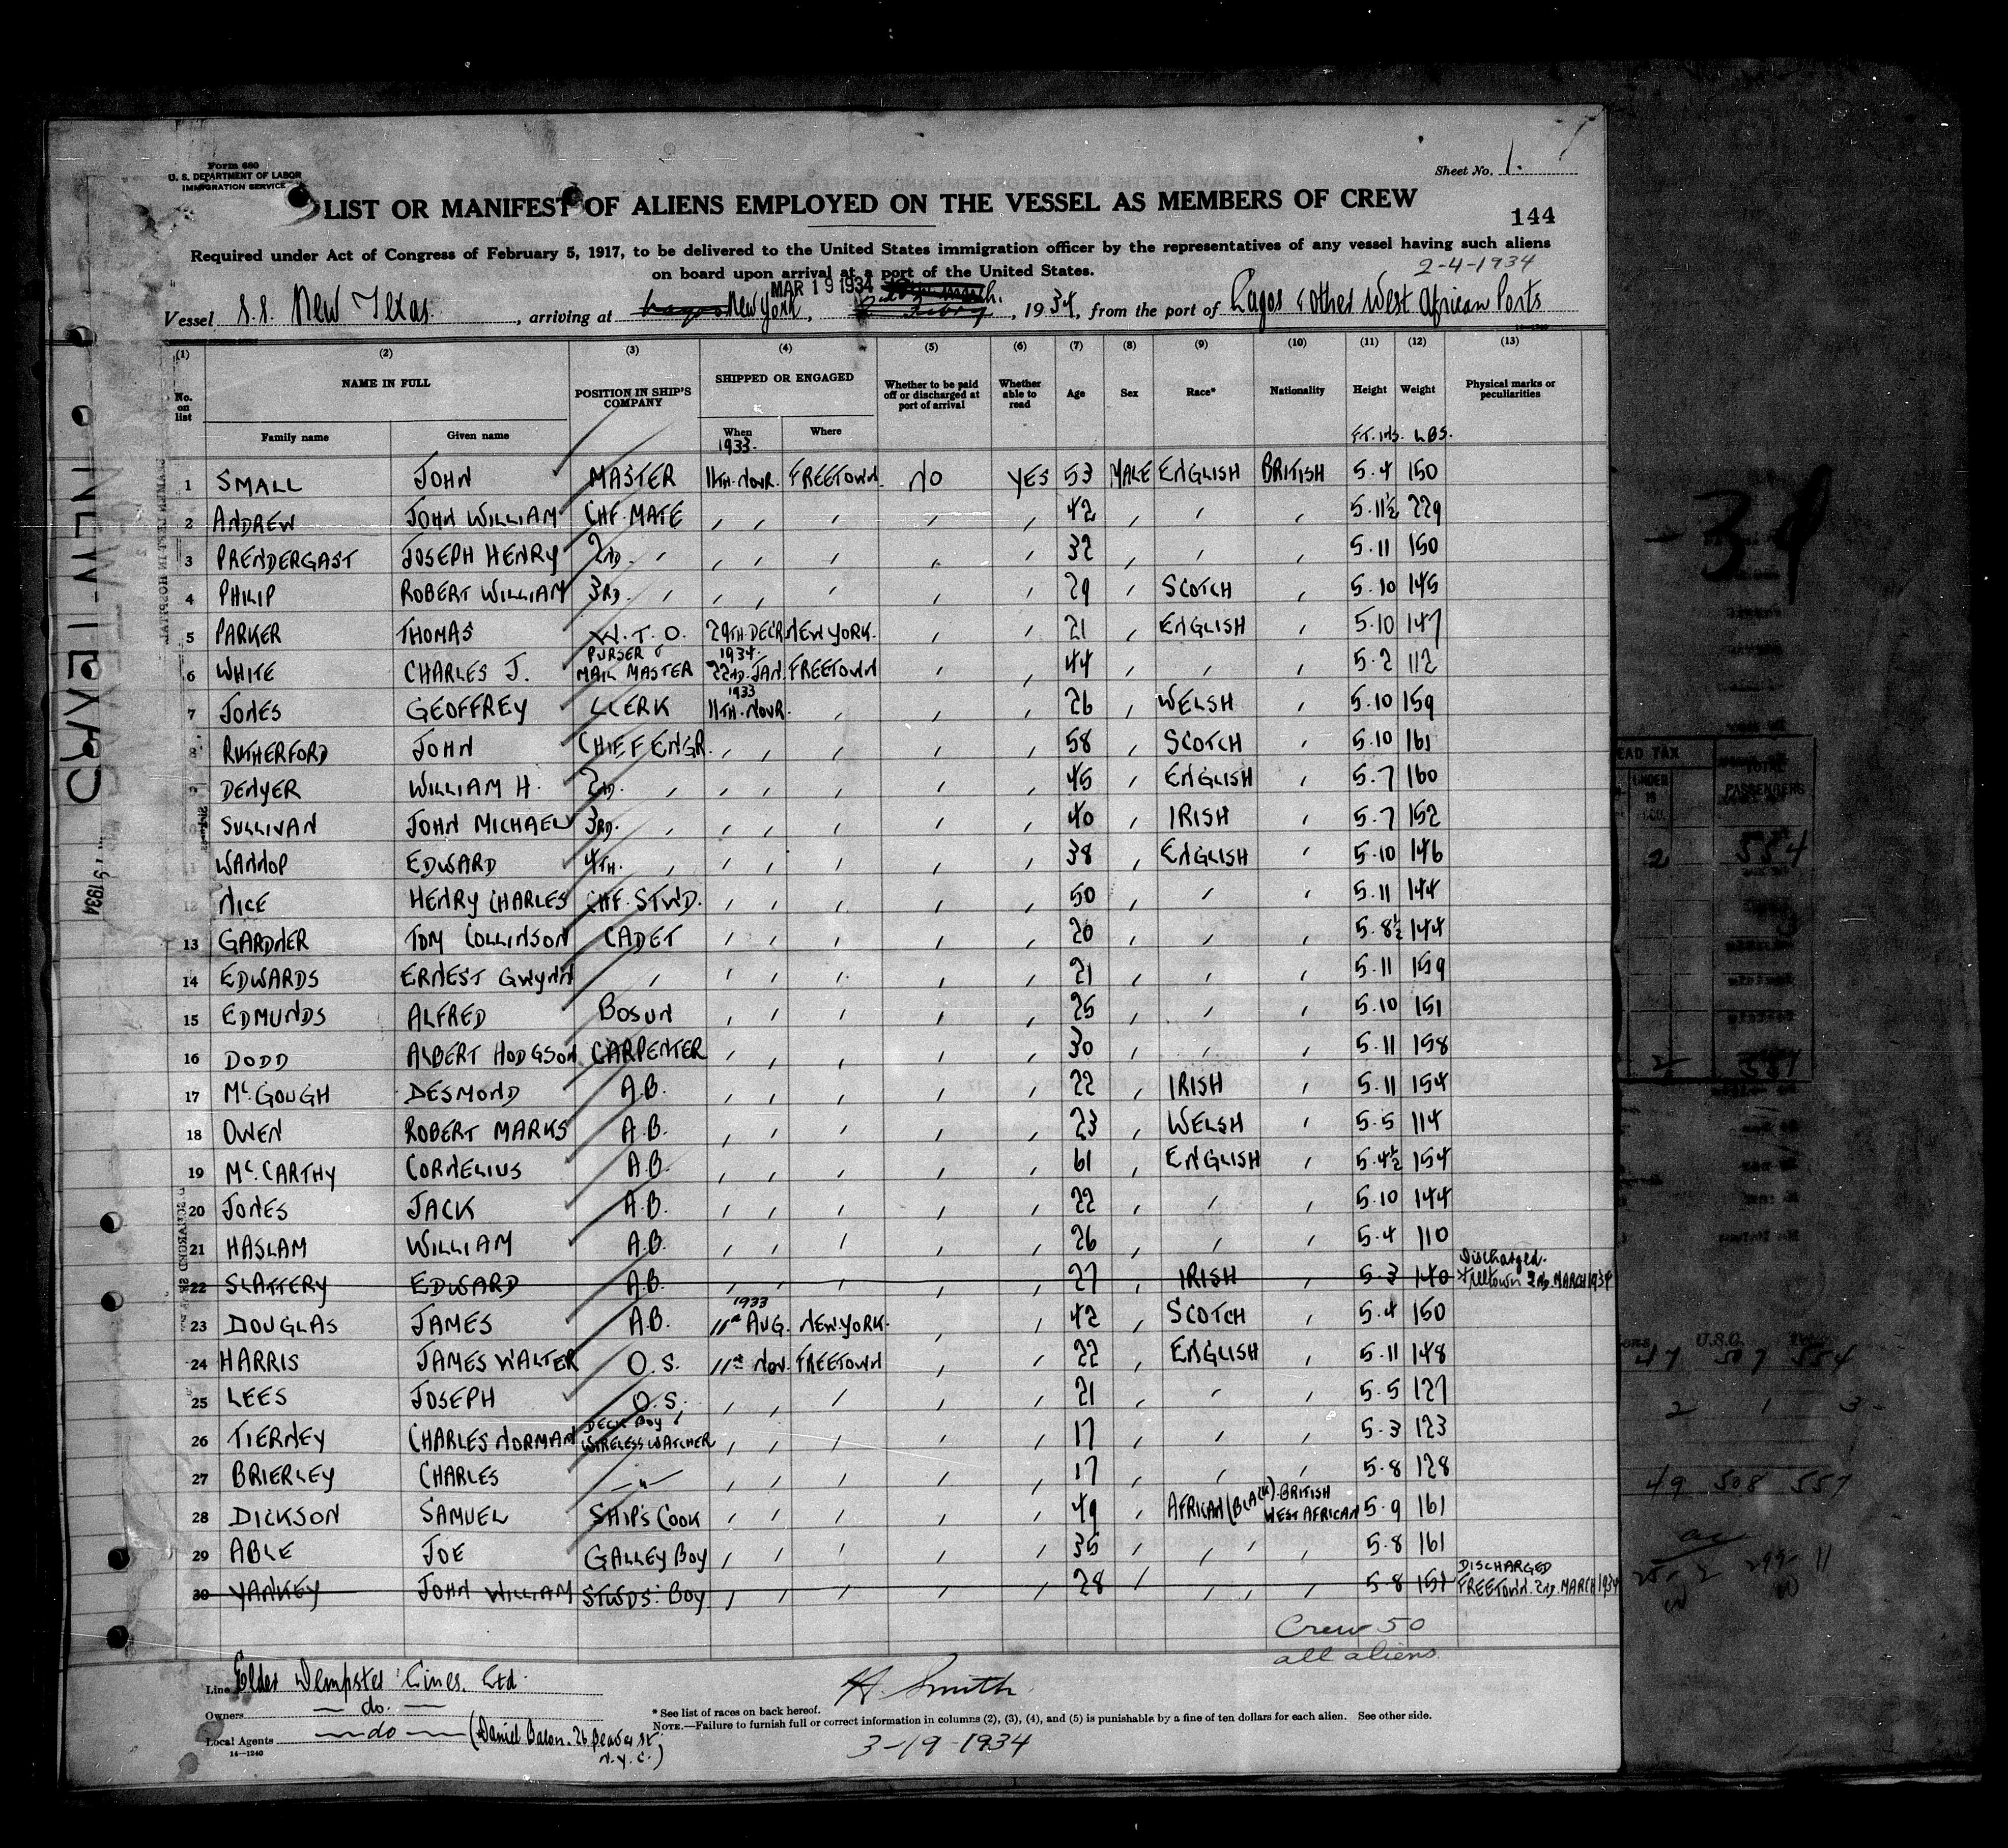 Form 680
U. S. DEPARTMENT OF LABOR
IMMIGRATION SERVICE
Sheet No. 1.
LIST OR MANIFEST OF ALIENS EMPLOYED ON THE VESSEL AS MEMBERS OF CREW
144
Required under Act of Congress of February 5, 1917, to be delivered to the United States immigration officer by the representatives of any vessel having such aliens
on board upon arrival at a port of the United States.
2-4-1934
MAR 19 1934
Vessel S.S. New Texas, arriving at New York, 1934, from the port of Lagos & other West African Ports
(1) (2) (3) (4) (5) (6) (7) (8) (9) (10) (11) (12) (13)
No. on list NAME IN FULL POSITION IN SHIP'S COMPANY SHIPPED OR ENGAGED Whether to be paid off or discharged at port of arrival Whether able to read Age Sex Race* Nationality Height Weight Physical marks or peculiarities
Family name Given name When Where FT. INS. LBS.
1933.
1 SMALL JOHN MASTER 11TH. NOVR. FREETOWN NO YES 53 MALE ENGLISH BRITISH 5.4 150
2 ANDREW JOHN WILLIAM CHF. MATE , , , , , 42 , , , 5.11½ 229
3 PRENDERGAST JOSEPH HENRY 2ND. , , , , , , 32 , , , 5.11 150
4 PHILIP ROBERT WILLIAM 3RD. , , , , , , 29 , SCOTCH , 5.10 145
5 PARKER THOMAS W.T.O. 29TH. DECR. NEW YORK. , , 21 , ENGLISH , 5.10 147
6 WHITE CHARLES J. PURSER & MAIL MASTER 1934. 22ND. JAN. FREETOWN , , 44 , , , 5.2 112
7 JONES GEOFFREY CLERK 1933 11TH. NOVR. , , , 26 , WELSH , 5.10 159
8 RUTHERFORD JOHN CHIEF ENGR. , , , , , 58 , SCOTCH , 5.10 161
9 DENYER WILLIAM H. 2ND. , , , , , , 45 , ENGLISH , 5.7 160
10 SULLIVAN JOHN MICHAEL 3RD. , , , , , , 40 , IRISH , 5.7 152
11 WANNOP EDWARD 4TH. , , , , , , 38 , ENGLISH , 5.10 146
12 NICE HENRY CHARLES CHF. STWD. , , , , , 50 , , , 5.11 144
13 GARDNER TOM COLLINSON CADET , , , , , 20 , , , 5.8½ 144
14 EDWARDS ERNEST GWYNN , , , , , , 21 , , , 5.11 159
15 EDMUNDS ALFRED BOSUN , , , , , 25 , , , 5.10 151
16 DODD ALBERT HODGSON CARPENTER , , , , , 30 , , , 5.11 158
17 McGOUGH DESMOND A.B. , , , , , 22 , IRISH , 5.11 154
18 OWEN ROBERT MARKS A.B. , , , , , 23 , WELSH , 5.5 114
19 McCARTHY CORNELIUS A.B. , , , , , 61 , ENGLISH , 5.4½ 154
20 JONES JACK A.B. , , , , , 22 , , , 5.10 144
21 HASLAM WILLIAM A.B. , , , , , 26 , , , 5.4 110
22 SLATTERY EDWARD A.B. , , , , , 27 , IRISH , 5.3 140 Discharged. Freetown 2ND. MARCH 1934
23 DOUGLAS JAMES A.B. 1933 11th AUG. NEW YORK. , , 42 , SCOTCH , 5.4 150
24 HARRIS JAMES WALTER O.S. 11th NOV. FREETOWN , , 22 , ENGLISH , 5.11 148
25 LEES JOSEPH O.S. , , , , , 21 , , , 5.5 127
26 TIERNEY CHARLES NORMAN DECK BOY & WIRELESS WATCHER , , , , , 17 , , , 5.3 123
27 BRIERLEY CHARLES —"— , , , , , 17 , , , 5.8 128
28 DICKSON SAMUEL SHIPS COOK , , , , , 49 , AFRICAN (BLACK) BRITISH WEST AFRICAN 5.9 161
29 ABLE JOE GALLEY BOY , , , , , 35 , , , , 5.8 161
30 YANKEY JOHN WILLIAM STWDS. BOY , , , , , 28 , , , , 5.8 151 DISCHARGED FREETOWN. 2ND. MARCH 1934
Crew 50
all aliens
Line Elder Dempster Lines. Ltd.
Owners — do. —
Local Agents — do — (Daniel Bacon. 26 Beaver St. N.Y.C.)
14—1240
H. Smith
* See list of races on back hereof.
NOTE.—Failure to furnish full or correct information in columns (2), (3), (4), and (5) is punishable by a fine of ten dollars for each alien. See other side.
3-19-1934
34
HEAD TAX
UNDER 16
TOTAL PASSENGERS
2 554
47 507 554
2 1 3
49 508 557